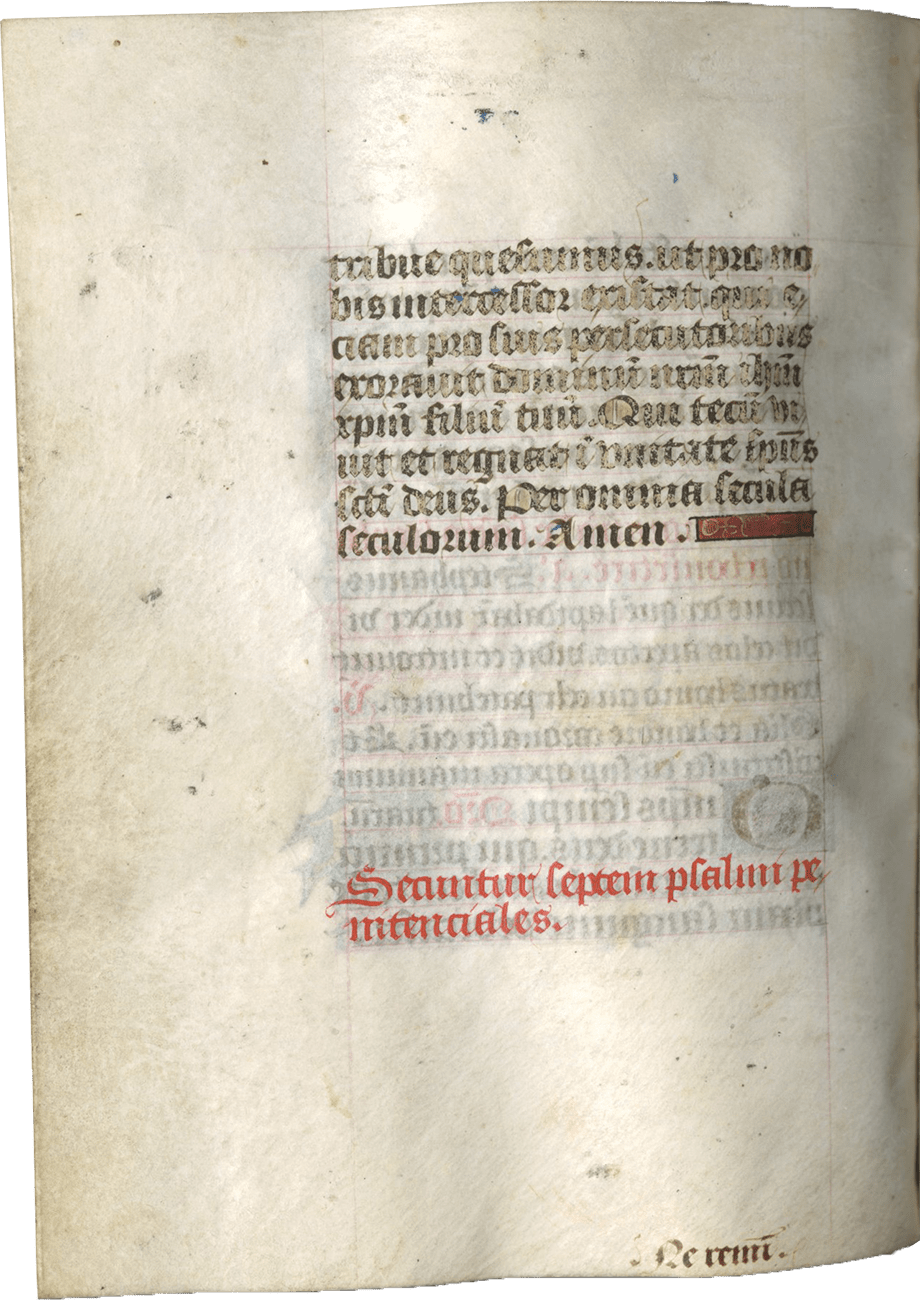 tribue quesumus. ut pro no
bis intercessor existat. qui e,
ciam pro suis persecutoribus
exorauit dominū nrm̄ ihm̄
xpm̄ filiū tuū. Qui tecū vi
uit et regnat ī vnitate spūs
sctī deus. Per omnia secula
seculorum. Amen.
Secuntur septem psalmi pe,
nitenciales.
. Ne remī.